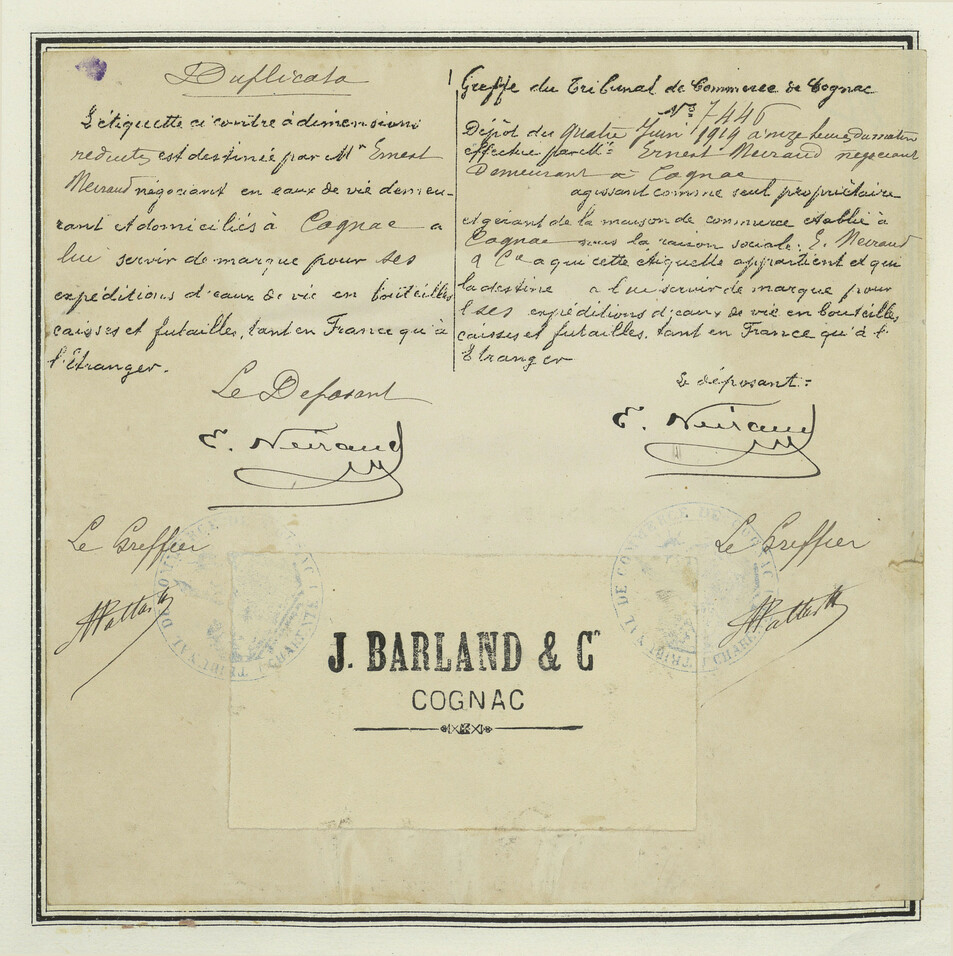 Duplicata
L'étiquette ci contre à dimensions
reduites est destinée par Mr Ernest
Neiraud négociant en eaux de vie demeu-
rant et domiciliés à Cognac a
lui servir de marque pour ses
expéditions d'eaux de vie en bouteilles
caisses et futailles, tant en France qu'à
l'étranger.
Le Deposant
E. Neiraud
Le Greffier
Greffe du Tribunal de Commerce de Cognac
No 7446
Dépôt du quatre Juin 1914 à onze heures du matin
effectué par Mr Ernest Neiraud négociant
Demeurant à Cognac
agissant comme seul propriétaire
et gérant de la maison de commerce établie à
Cognac sous la raison sociale: E. Neiraud
& Co a qui cette étiquette appartient et qui
la destine a lui servir de marque pour
ses expéditions d'eaux de vie en bouteilles
caisses et futailles, tant en France qu'à l'
Etranger
Le déposant:
E. Neiraud
Le Greffier
TRIBUNAL DE COMMERCE DE COGNAC
TRIBUNAL DE COMMERCE DE COGNAC
J. BARLAND & Co
COGNAC